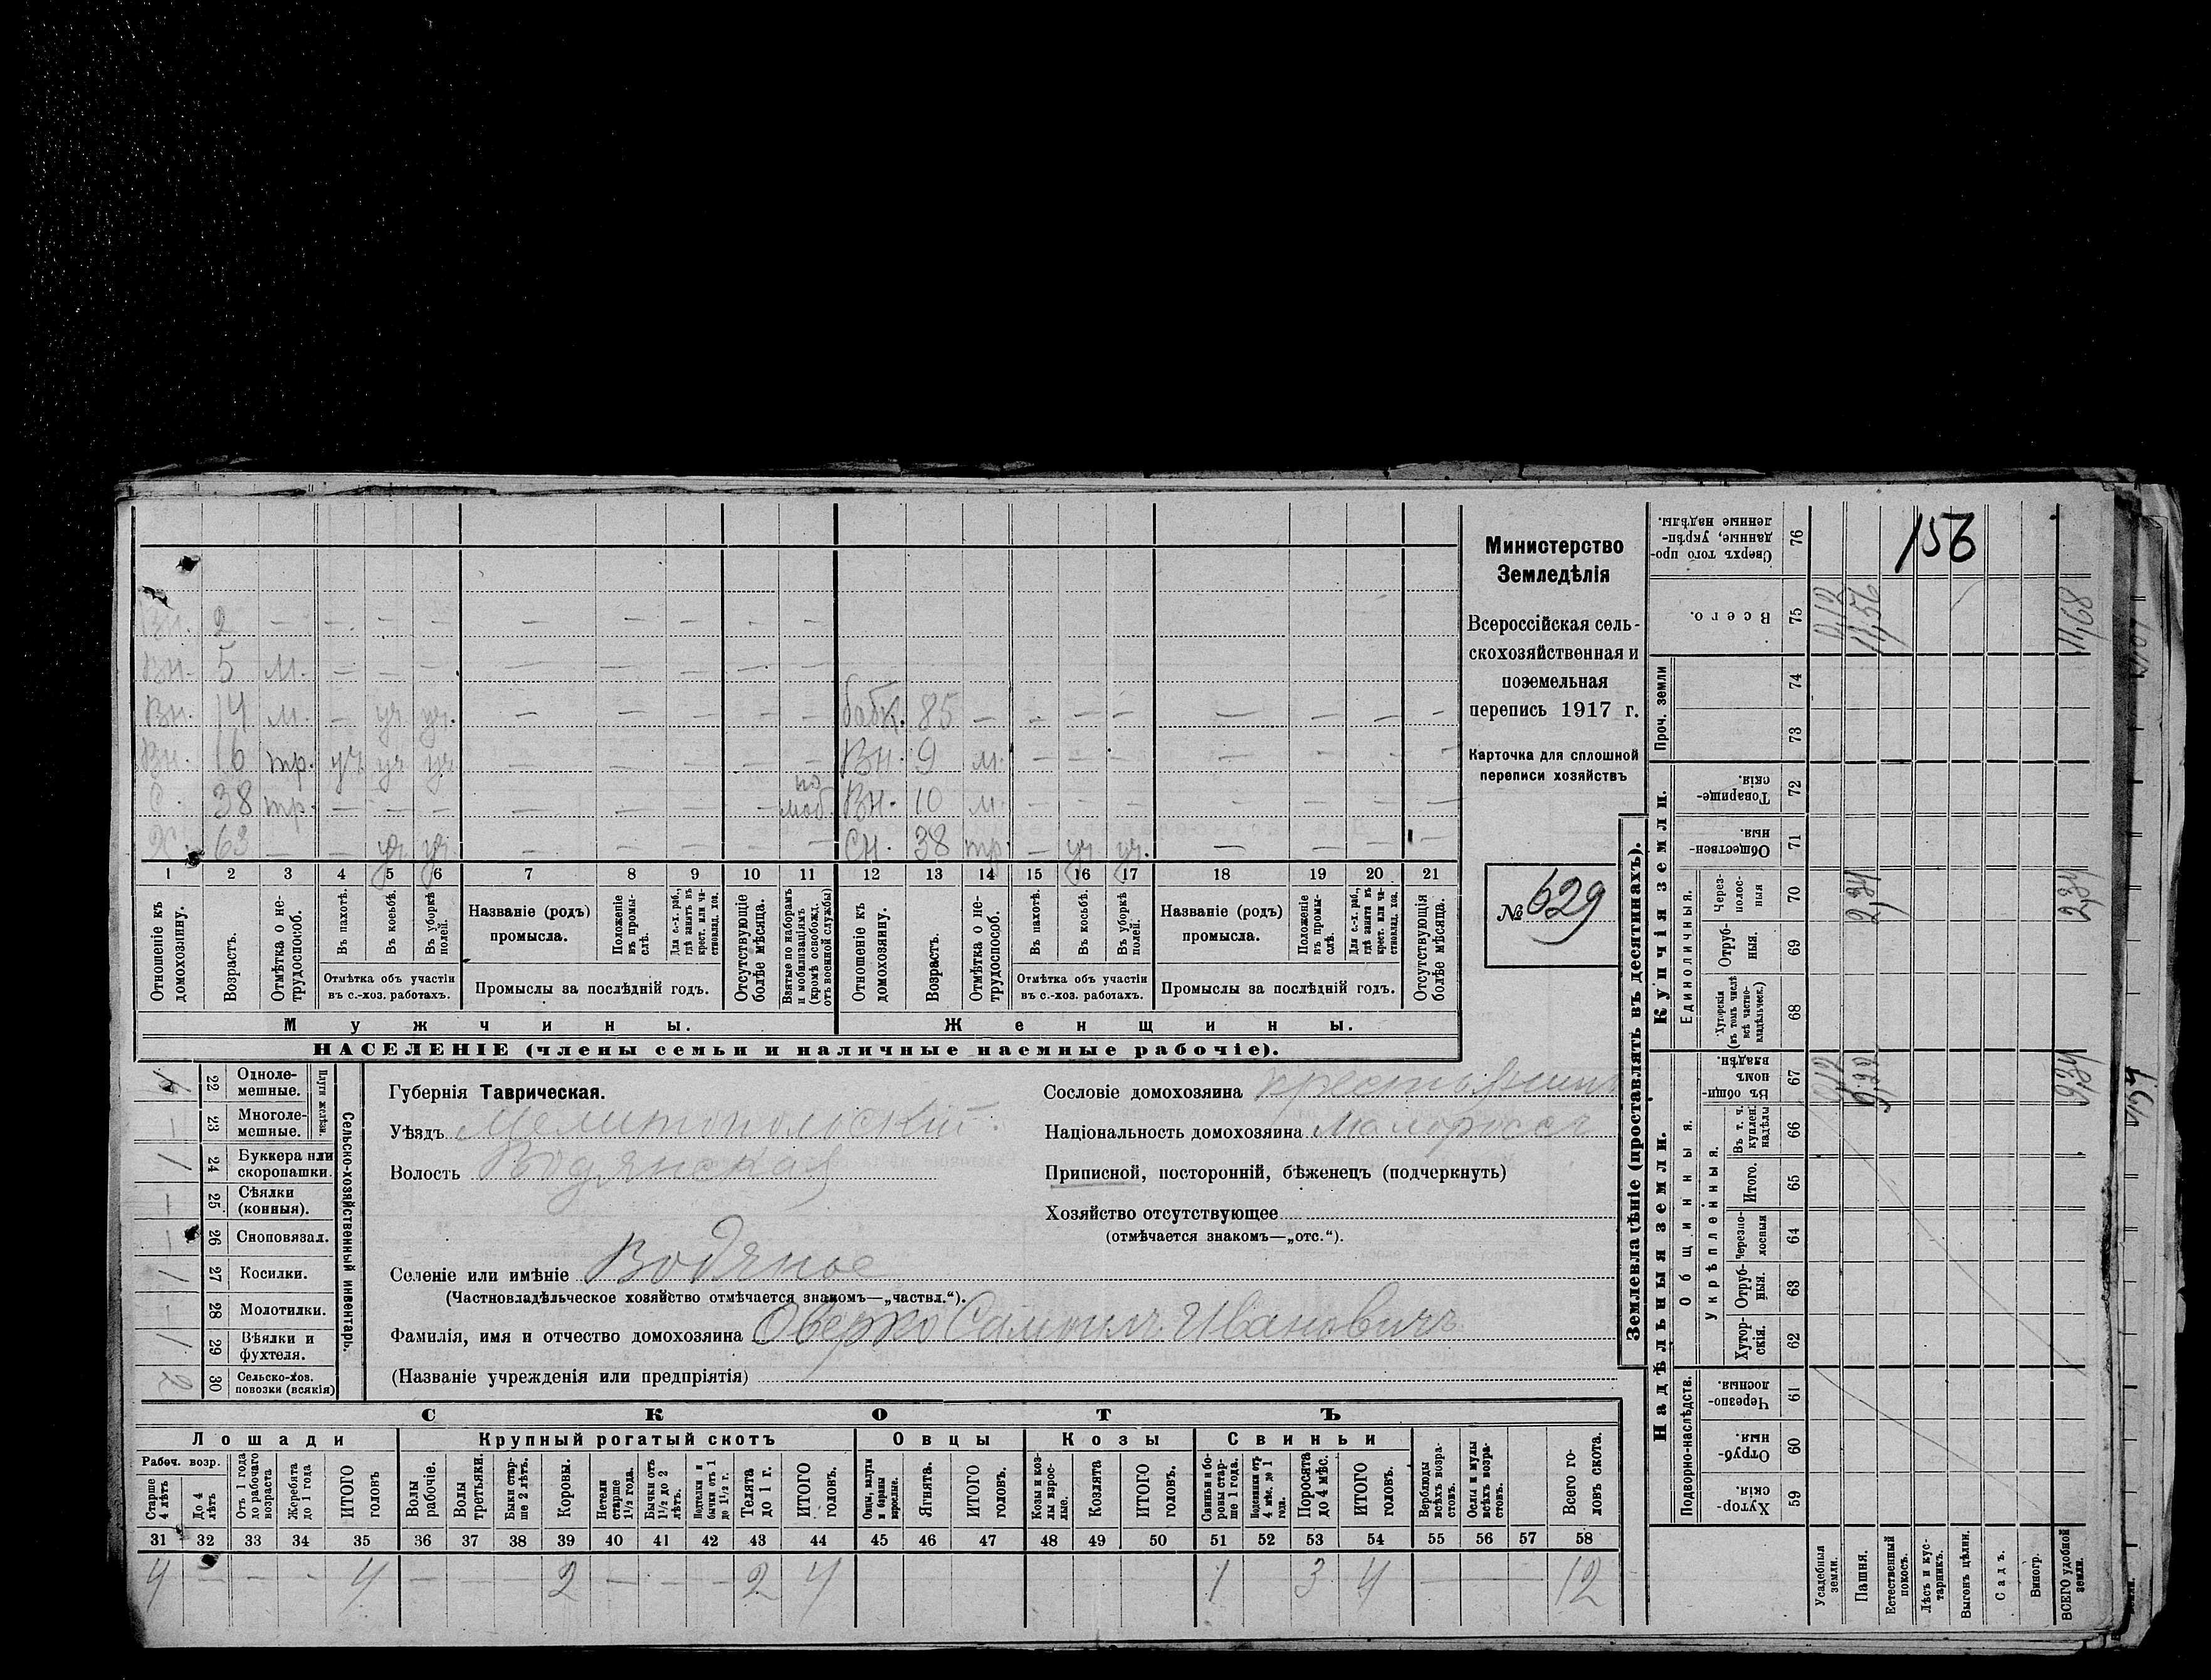 156
Министерство
Земледѣлія
Всероссійская сель-
скохозяйственная и
поземельная
перепись 1917 г.
Карточка для сплошной
переписи хозяйствъ
№ 629
Вн. 2 — — — — — — — — —
Вн. 5 м. — — — — — — — —
Вн. 14 м. — уч уч. — — — — — бабк. 85 — — — — — — — —
Вн. 16 тр. уч уч уч — — — — — Вн. 9 м. — — — — — — —
С. 38 тр. — — — — — — — по моб. Вн. 10 м. — — — — — — —
Х. 63 — — уч уч — — — — — Сн. 38 тр. — уч. уч. — — — —
1 2 3 4 5 6 7 8 9 10 11 12 13 14 15 16 17 18 19 20 21
Отношеніе къ домохозяину.
Возрастъ.
Отмѣтка о не-трудоспособ.
Въ пахотѣ.
Въ косьбѣ.
Въ уборкѣ полей.
Отмѣтка объ участіи
въ с.-хоз. работахъ.
Названіе (родъ)
промысла.
Положеніе въ промы-слѣ.
Для с.-х. раб., гдѣ занятъ въ крест. или ча-стновлад. хоз.
Промыслы за послѣдній годъ.
Отсутствующіе болѣе мѣсяца.
Взятые по наборамъ и мобилизаціямъ (кромѣ освобожд. отъ военной службы)
Отношеніе къ домохозяину.
Возрастъ.
Отмѣтка о не-трудоспособ.
Въ пахотѣ.
Въ косьбѣ.
Въ уборкѣ полей.
Отмѣтка объ участіи
въ с.-хоз. работахъ.
Названіе (родъ)
промысла.
Положеніе въ промы-слѣ.
Для с.-х. раб., гдѣ занята въ крест. или ча-стновлад. хоз.
Промыслы за послѣдній годъ.
Отсутствующія болѣе мѣсяца.
Мужчины. Женщины.
НАСЕЛЕНІЕ (члены семьи и наличные наемные рабочіе).
Сельско-хозяйственный инвентарь.
Плуги желѣзн.
22 Однолемешные.
— 23 Многолемешные.
1 24 Буккера или скоропашки.
— 25 Сѣялки (конныя).
— 26 Сноповязал.
1 27 Косилки.
— 28 Молотилки.
1 29 Вѣялки и фухтеля.
2 30 Сельско-хоз. повозки (всякія)
Губернія Таврическая.
Уѣздъ Мелитопольскій.
Волость Водянская
Селеніе или имѣніе Водяное
(Частновладѣльческое хозяйство отмѣчается знакомъ—„частвл.“).
Фамилія, имя и отчество домохозяина Оверко Самуил. Ивановичъ
(Названіе учрежденія или предпріятія)
Сословіе домохозяина крестьянинъ
Національность домохозяина малороссъ
Приписной, посторонній, бѣженецъ (подчеркнуть)
Хозяйство отсутствующее
(отмѣчается знакомъ—„отс.“).
СКОТЪ
Лошади Крупный рогатый скотъ Овцы Козы Свиньи
Рабоч. возр.
Старше 4 лѣтъ
До 4 лѣтъ
Отъ 1 года до рабочаго возраста
Жеребята до 1 года
ИТОГО головъ
Волы рабочіе.
Волы третьяки.
Быки стар-ше 2 лѣтъ.
Коровы.
Нетели старше 1½ года.
Бычки отъ 1½ до 2 лѣтъ.
Подтелки и бычки отъ 1 до 1½ г.
Телята до 1 г.
ИТОГО головъ.
Овцы, валухи и бараны взрослые.
Ягнята.
ИТОГО головъ.
Козы и коз-лы взрос-лые.
Козлята
ИТОГО головъ.
Свиньи и бо-ровы стар-ше 1 года.
Подсвинки отъ 4 мѣс. до 1 года.
Поросята до 4 мѣс.
ИТОГО головъ.
Верблюды всѣхъ возра-стовъ.
Ослы и мулы всѣхъ возра-стовъ.
Всего го-ловъ скота.
31 32 33 34 35 36 37 38 39 40 41 42 43 44 45 46 47 48 49 50 51 52 53 54 55 56 57 58
4 — — — 4 — — — 2 — — — 2 4 1 3 4 — — — 12
Землевладѣніе (проставлять въ десятинахъ).
Надѣльныя земли. Купчія земли. Проч. земли
Подворно-наслѣдств.
Общинныя.
Укрѣпленныя.
Единоличныя.
59 Хутор-скія.
60 Отруб-ныя.
61 Черезпо-лосныя.
62 Хутор-скія.
63 Отруб-ныя.
64 Черезпо-лосныя
65 Итого.
66 Въ т. ч. куплен. надѣлы
67 Въ общин-номъ владѣн.
68 Хуторскія (въ томъ числѣ всѣ частно-владѣльческ.)
69 Отруб-ныя.
70 Через-полос-ныя
71 Обществен-ныя.
72 Товарище-скія.
73
74
75 Всего.
76 Сверхъ того про-данные, укрѣп-ленные надѣлы.
Усадебныя земли. 0,12 0,12
Пашня. 9,22 2,34 11,56
Естественный покосъ.
Лѣсъ и кус-тарникъ.
Выгонъ цѣлин.
Садъ.
Виногр.
ВСЕГО удобной земли. 9,34 2,34 11,68